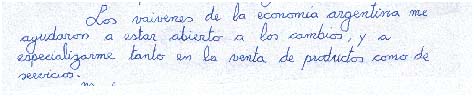 Los vaivenes de la economía argentina me
ayudaron a estar abierto a los cambios, y a
especializarme tanto en la venta de productos como de
servicios.